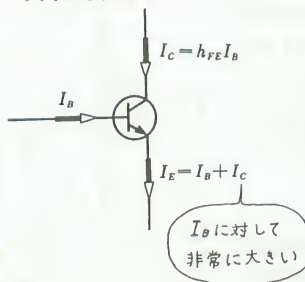 I_C = h_{FE} I_B
I_B
I_E = I_B + I_C
I_Bに対して
非常に大きい